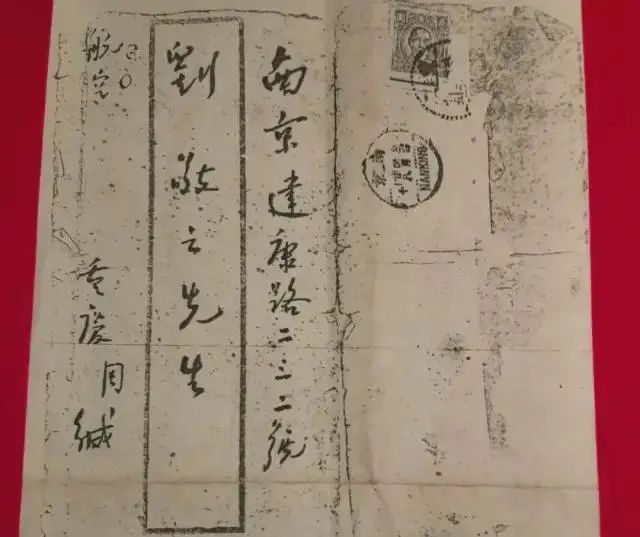 南京建康路二三二號
劉敬之先生
重慶周緘
南京
NANKING